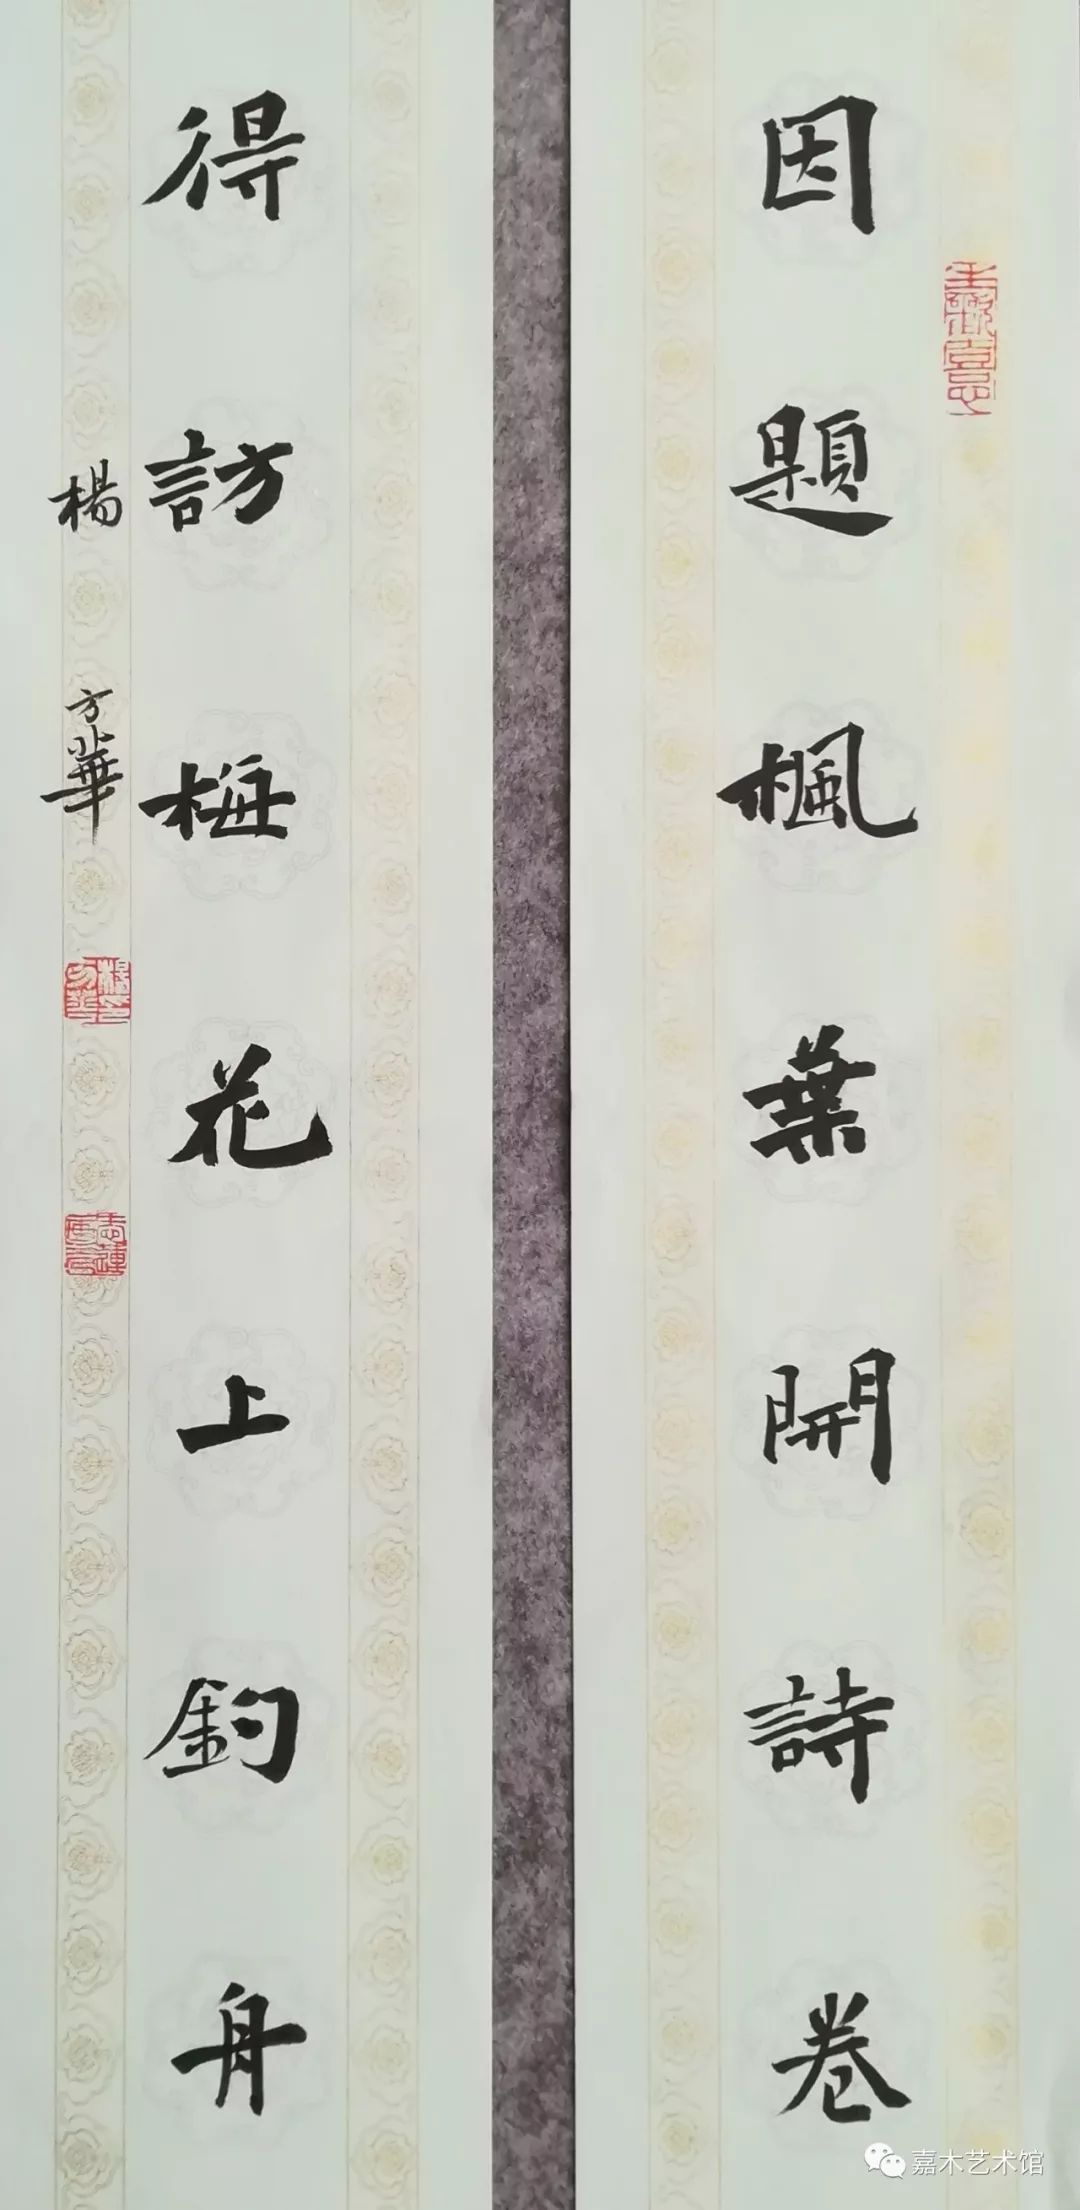 因題楓葉開詩卷
得訪梅花上釣舟
楊方華
嘉木艺术馆